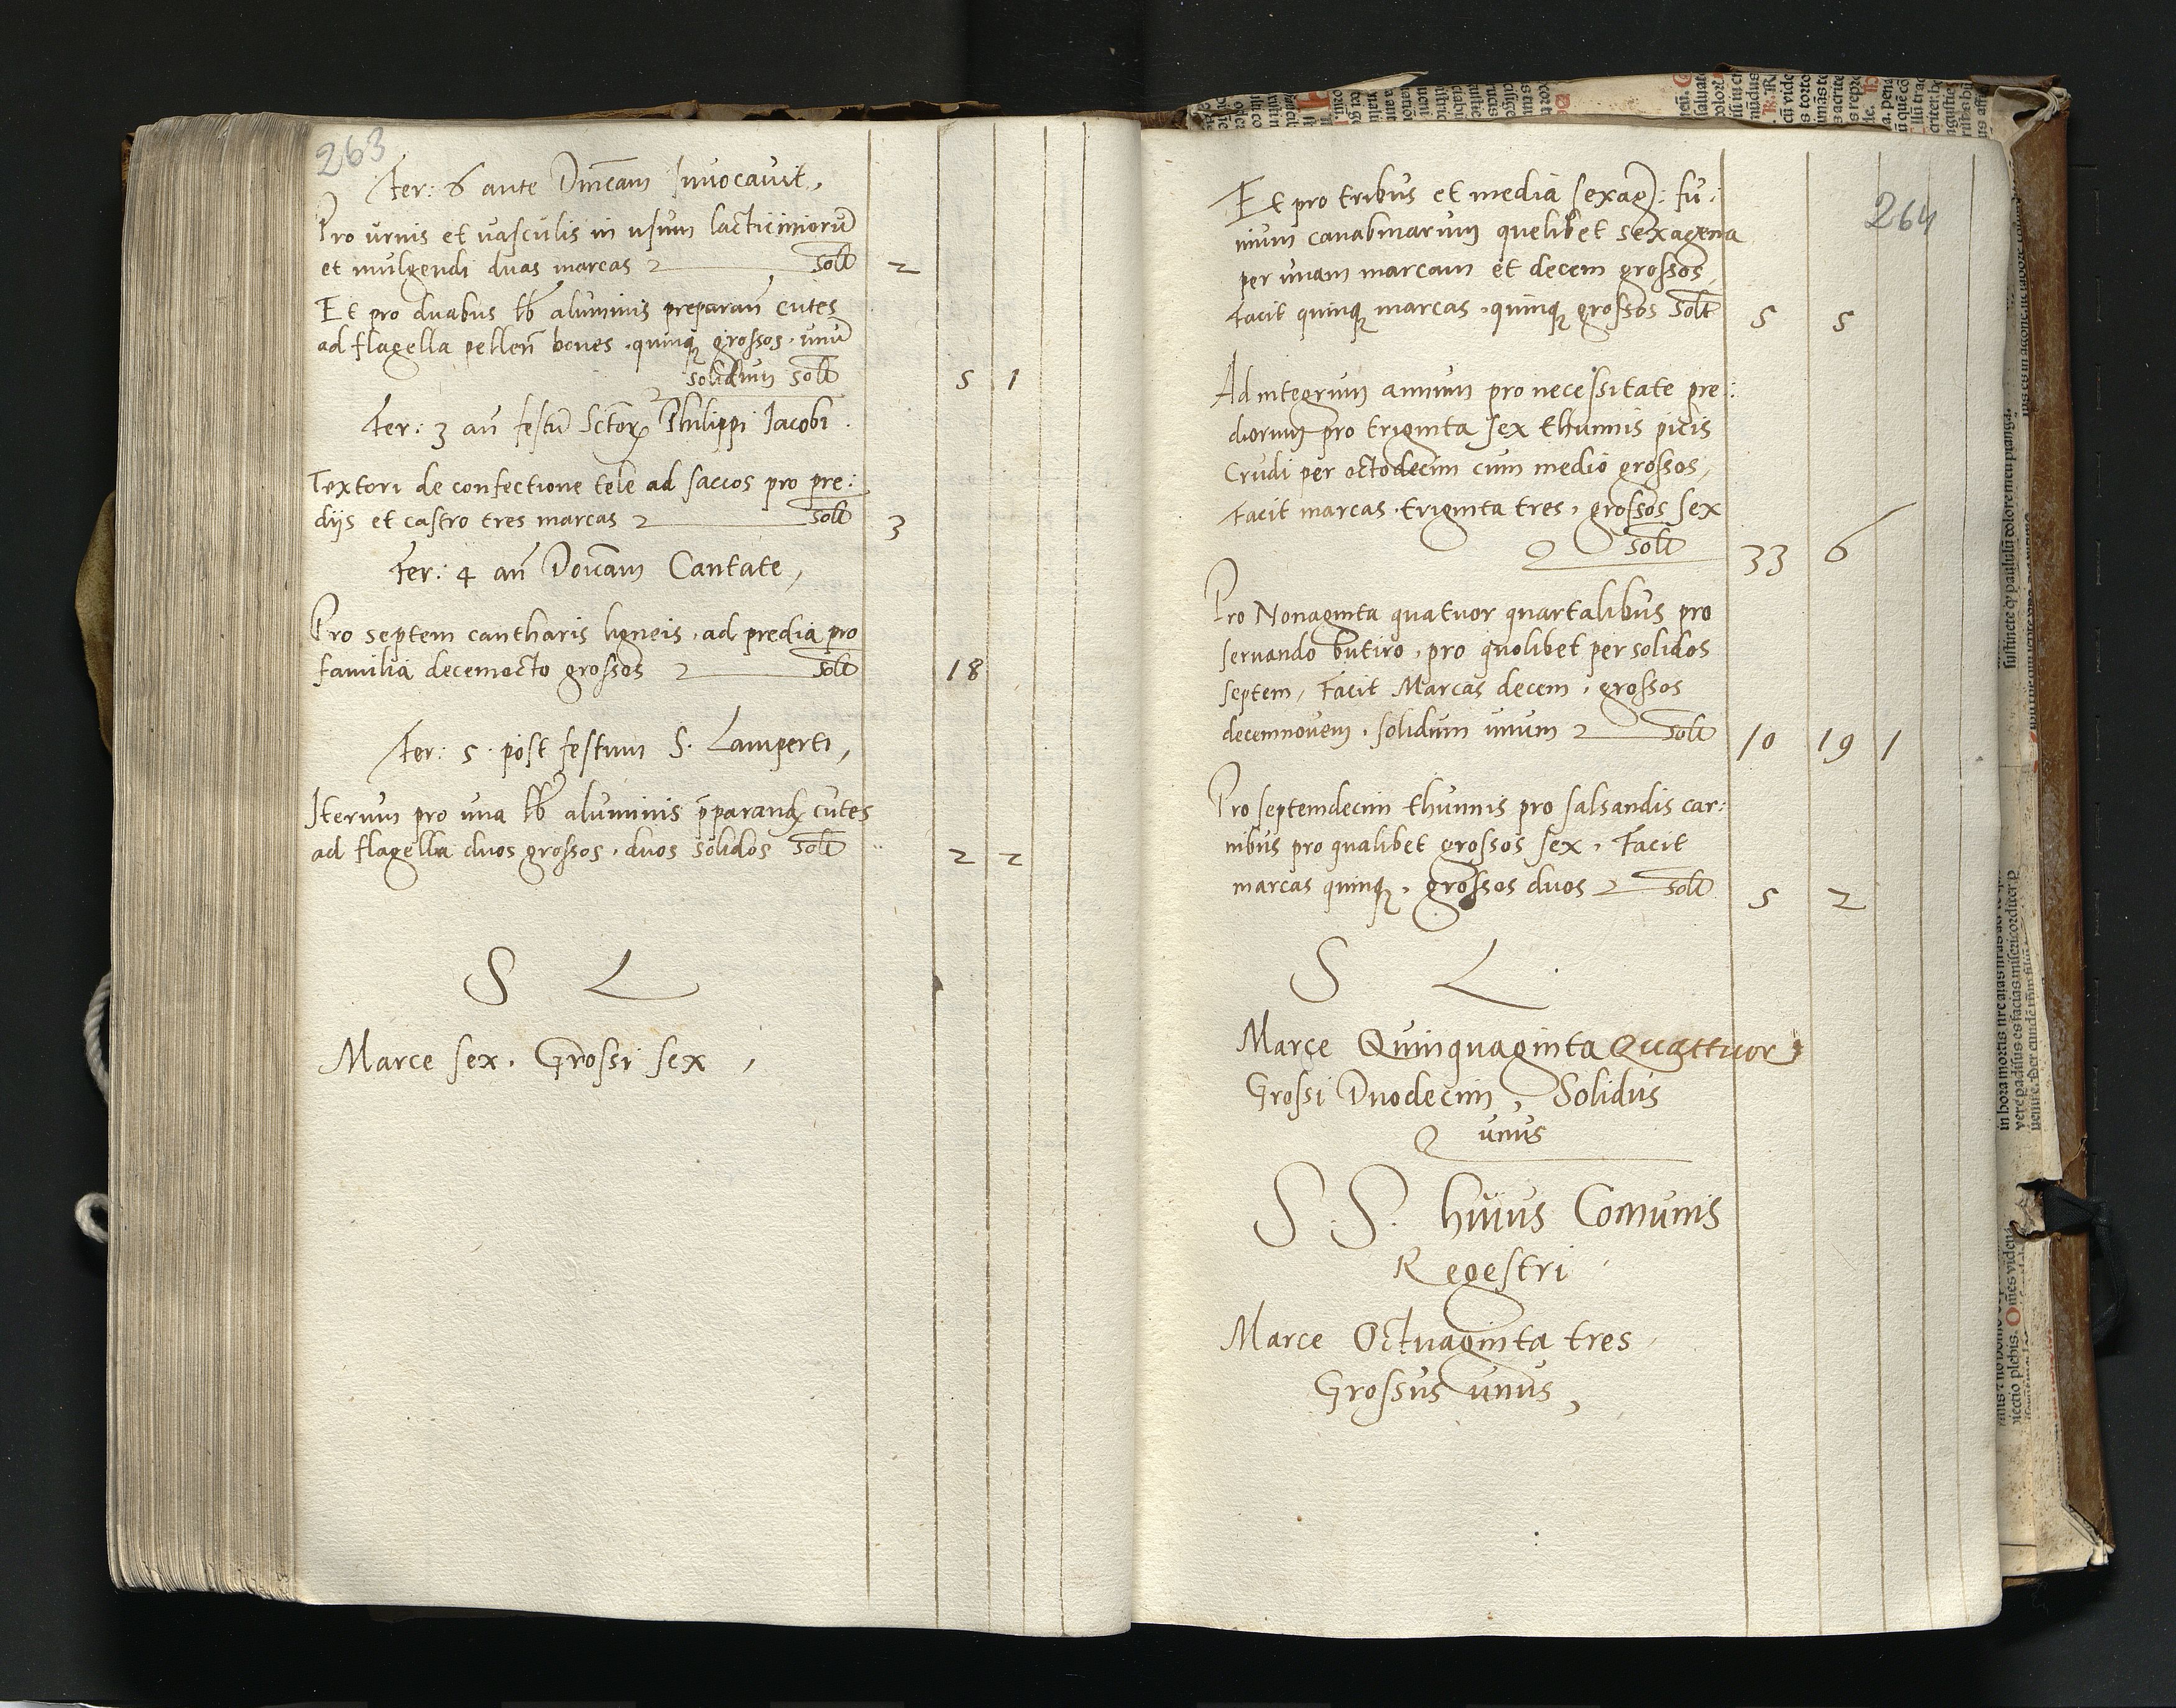 263
Fer: 6 ante Dnicam Invocavit,
Pro vrnis et vasculis in vsum lacticiniorū
et mulgendi duas marcas solt 2
Et pro duabus lb aluminis preparan̄ cutes
ad flagella pellen̄ boues, quinq̨ grossos, unū
solidum solt 5 1
Fer: 3 an̄ festū Sctorꝝ Philippi Jacobi.
Textori de confectione tele ad saccos pro pre:
dijs et castro tres marcas solt 3
Fer: 4 an̄ Domcam Cantate,
Pro septem cantharis ligneis, ad predia pro
familia decemocto grossos solt 18
Fer: 5 post festum S. Lamperti,
Iterum pro una lb aluminis p̄parand cutes
ad flagella duos grossos, duos solidos solt 2 2
S L
Marce sex. Grossi sex,
264
Et pro tribus et media sexag: fu:
nium canabinarum quelibet sexagena
per unam marcam et decem grossos,
Facit quinq̨ marcas, quinq̨ grossos solt 5 5
Ad integrum annum pro necessitate pre:
diorum pro triginta sex thunnis picis
Crudi per octodecim cum medio grossos,
Facit marcas triginta tres, grossos sex
solt 33 6
Pro Nonaginta quatuor quartalibus pro
seruando butiro, pro quolibet per solidos
septem, Facit Marcas decem, grossos
decemnovem, solidum unum solt 10 19 1
Pro septemdecim thunnis pro salsandis car:
nibus pro qualibet grossos sex, Facit
marcas quinq̨, grossos duos solt 5 2
S L
Marce Quinquaginta Quattuor
Grossi Duodecim, Solidus
unus
S. S. huius Comunis
Regestri
Marce Octuaginta tres
Grossus unus,